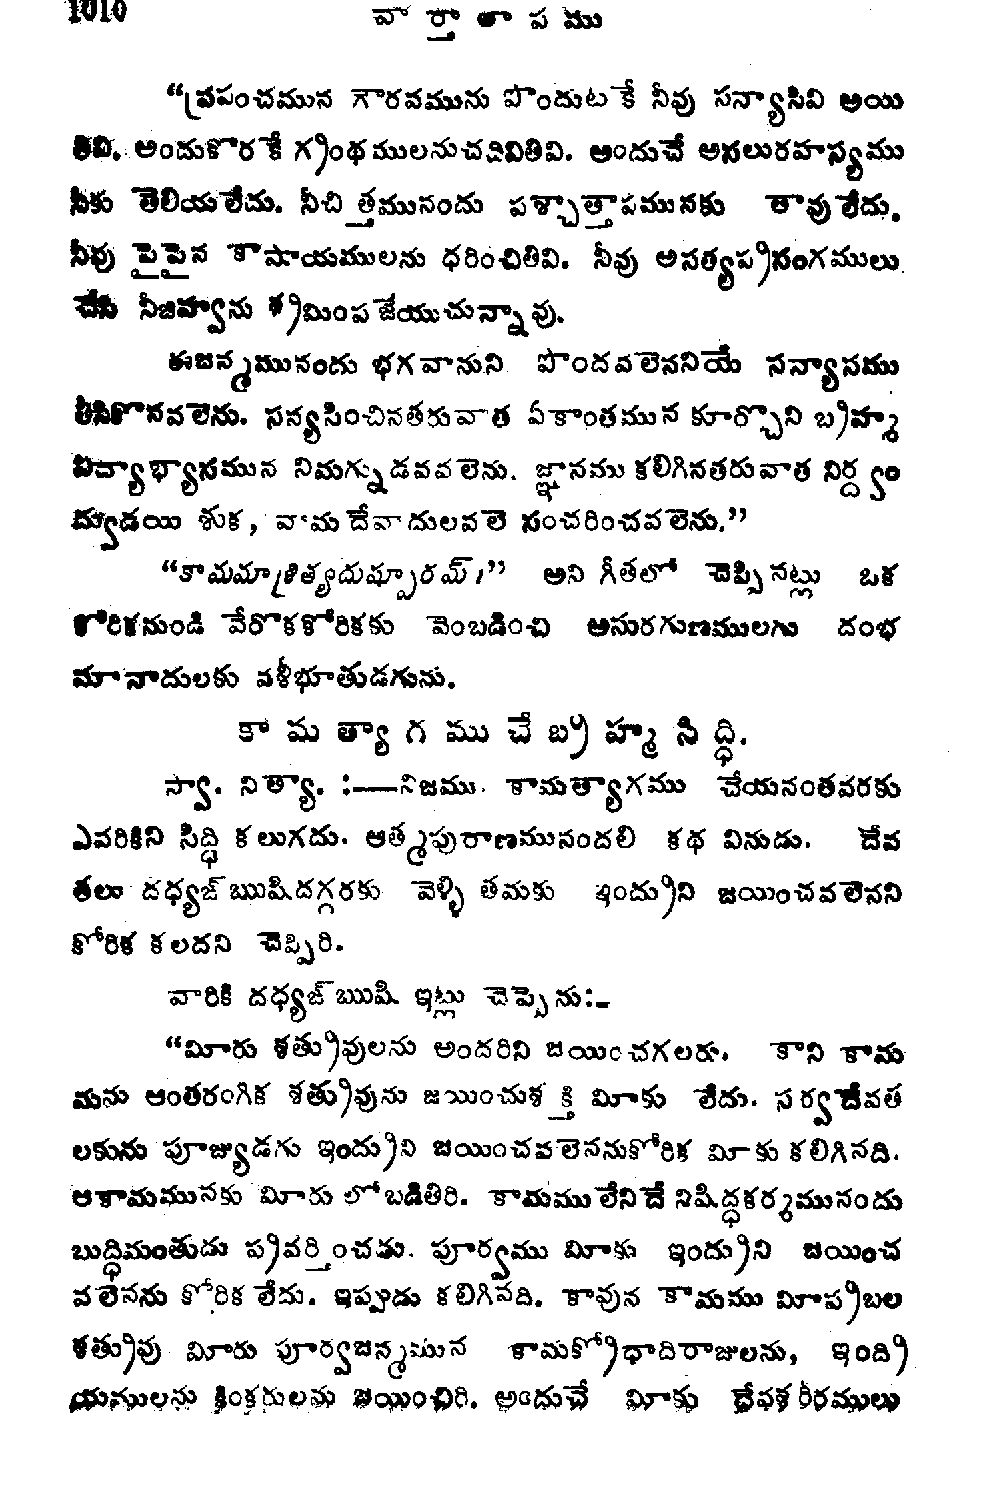 1010
వార్తాలాపము
“ప్రపంచమున గౌరవమును పొందుటకే నీవు సన్యాసివి అయి
తివి. అందుకొరకే గ్రంథములనుచదివితివి. అందుచే అసలురహస్యము
నీకు తెలియలేదు. నీచిత్తమునందు పశ్చాత్తాపమునకు తావులేదు.
నీవు పైపైన కాషాయములను ధరించితివి. నీవు అసత్యప్రసంగములు
చేసి నీజిహ్వను శ్రమింపజేయుచున్నావు.
ఈజన్మమునందు భగవానుని పొందవలెననియే సన్యాసము
తీసికొనవలెను. సన్యసించినతరువాత ఏకాంతమున కూర్చొని బ్రహ్మ
విద్యాభ్యాసమున నిమగ్నుడవవలెను. జ్ఞానము కలిగినతరువాత నిర్ద్వం
ద్వుడయి శుక, వామదేవాదులవలె సంచరించవలెను.”
“కామమాశ్రిత్యదుష్పూరమ్।” అని గీతలో చెప్పినట్లు ఒక
కోరికనుండి వేరొకకోరికకు వెంబడించి ఆసురగుణములగు దంభ
మానాదులకు వశీభూతుడగును.
కామత్యాగముచే బ్రహ్మసిద్ధి.
స్వా. నిత్యా. :—నిజము. కామత్యాగము చేయనంతవరకు
ఎవరికిని సిద్ధి కలుగదు. ఆత్మపురాణమునందలి కథ వినుడు. దేవ
తలు దధ్యజ్ ఋషిదగ్గరకు వెళ్ళి తమకు ఇంద్రుని జయించవలెనని
కోరిక కలదని చెప్పిరి.
వారికి దధ్యజ్ ఋషి ఇట్లు చెప్పెను:-
“మీరు శత్రువులను అందరిని జయించగలరు. కాని కామ
మను ఆంతరంగిక శత్రువును జయించుశక్తి మీకు లేదు. సర్వదేవత
లకును పూజ్యుడగు ఇంద్రుని జయించవలెననుకోరిక మీకు కలిగినది.
ఆకామమునకు మీరు లోబడితిరి. కామములేనిదే నిషిద్ధకర్మమునందు
బుద్ధిమంతుడు ప్రవర్తించడు. పూర్వము మీకు ఇంద్రుని జయించ
వలెనను కోరికలేదు. ఇప్పుడు కలిగినది. కావున కామము మీప్రబల
శత్రువు మీరు పూర్వజన్మమున కామక్రోధాదిరాజులను, ఇంద్రి
యములను కింకరులను జయించిరి. అందుచే మీకు దేవశరీరములు